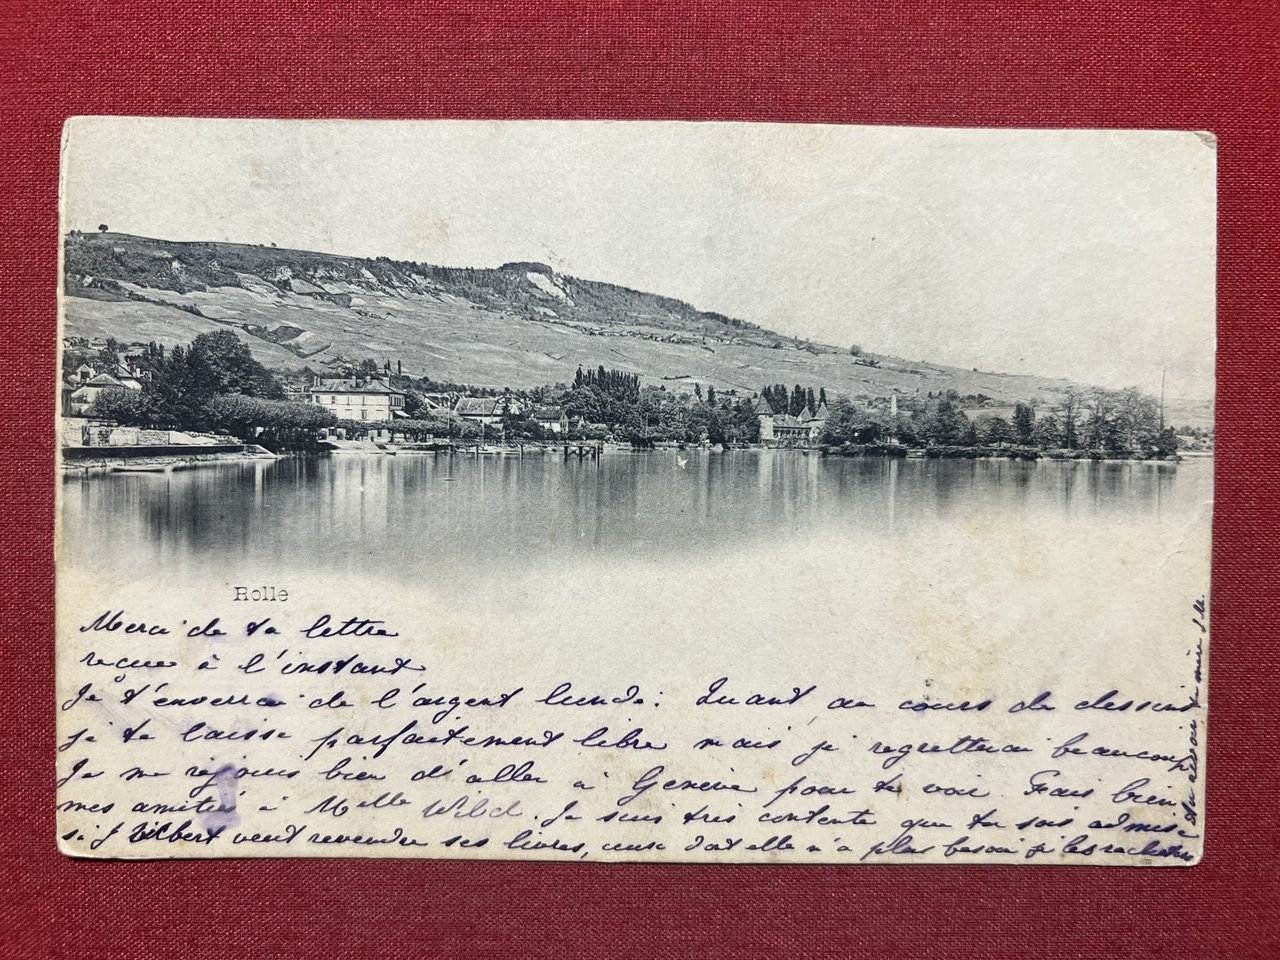 Rolle
Merci de ta lettre
reçue à l'instant
Je t'enverrai de l'argent lundi. Quant au cours de dessin
je te laisse parfaitement libre mais je regretterai beaucoup
Je me réjouis bien d'aller à Genève pour te voir. Fais bien
mes amitiés à Melle Wild. Je suis très contente que tu sois admise
si J Vilbert veut revendre ses livres, ceux dont elle n'a plus besoin je les rachèterais
Au revoir ta mère J. M.